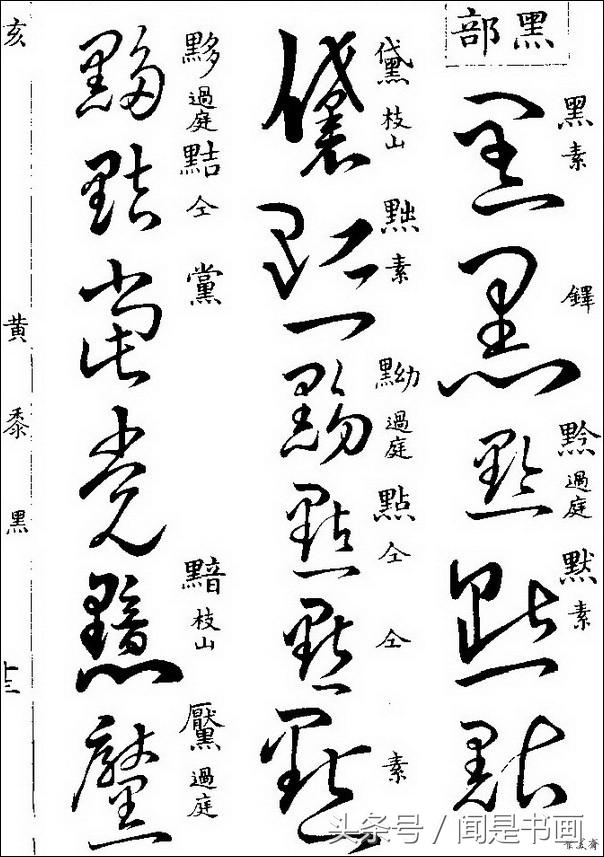 黑部
黑 素
鐸
黔 過庭
默 素
黛 枝山
黜 素
黝 過庭
點 仝
仝
素
黟 過庭
黠 仝
黨
黯 枝山
黶 過庭
亥
黄
黍
黑
十三
头条号 / 闻是书画